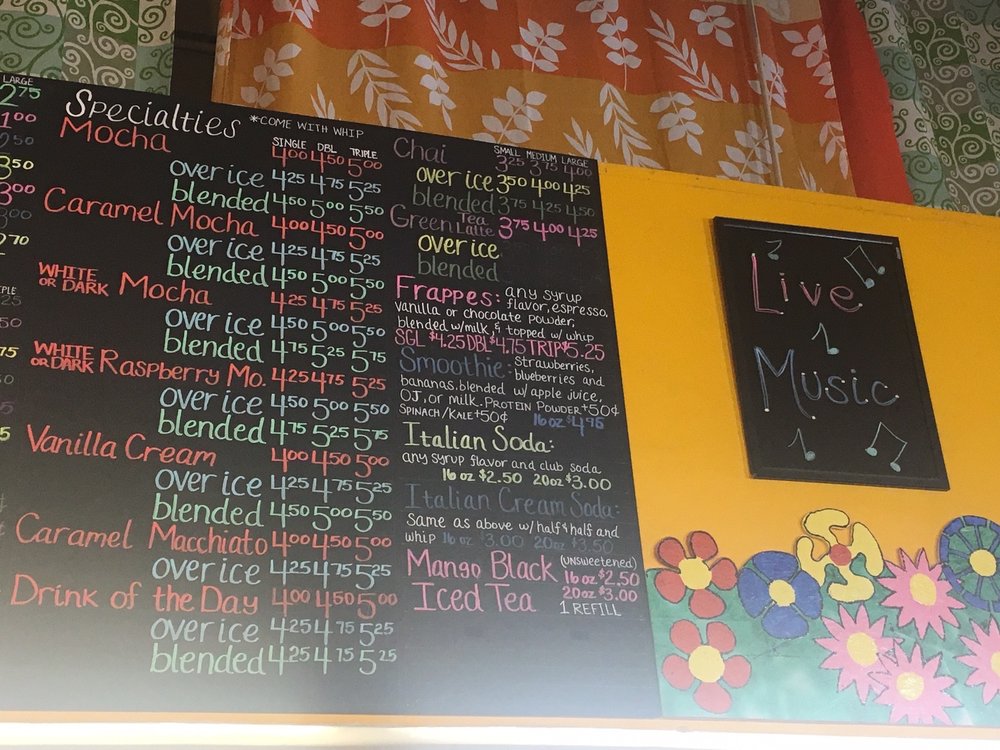 LARGE
2 75
1 00
2 50
3 50
3 00
3 00
2 70
Specialties *COME WITH WHIP
SINGLE DBL TRIPLE
Mocha 4 00 4 50 5 00
over ice 4 25 4 75 5 25
blended 4 50 5 00 5 50
Caramel Mocha 4 00 4 50 5 00
over ice 4 25 4 75 5 25
blended 4 50 5 00 5 50
WHITE OR DARK Mocha 4 25 4 75 5 25
over ice 4 50 5 00 5 50
blended 4 75 5 25 5 75
WHITE OR DARK Raspberry Mo. 4 25 4 75 5 25
over ice 4 50 5 00 5 50
blended 4 75 5 25 5 75
Vanilla Cream 4 00 4 50 5 00
over ice 4 25 4 75 5 25
blended 4 50 5 00 5 50
Caramel Macchiato 4 00 4 50 5 00
over ice 4 25 4 75 5 25
Drink of the Day 4 00 4 50 5 00
over ice 4 25 4 75 5 25
blended 4 25 4 75 5 25
SMALL MEDIUM LARGE
Chai 3 25 3 75 4 00
over ice 3 50 4 00 4 25
blended 3 75 4 25 4 50
Green Tea Latte 3 75 4 00 4 25
over ice
blended
Frappes: any syrup
flavor, espresso,
vanilla or chocolate powder,
blended w/milk, & topped w/ whip
SGL $4.25 DBL $4.75 TRIP $5.25
Smoothie: strawberries,
blueberries and
bananas. blended w/ apple juice,
OJ, or milk. PROTEIN POWDER +50¢
SPINACH/KALE +50¢ 16 oz $4.75
Italian Soda:
any syrup flavor and club soda
16 oz $2.50 20 oz $3.00
Italian Cream Soda:
Same as above w/ half & half and
whip 16 oz $3.00 20 oz $3.50
Mango Black (UNSWEETENED)
Iced Tea 16 oz $2.50
20 oz $3.00
1 REFILL
Live
Music